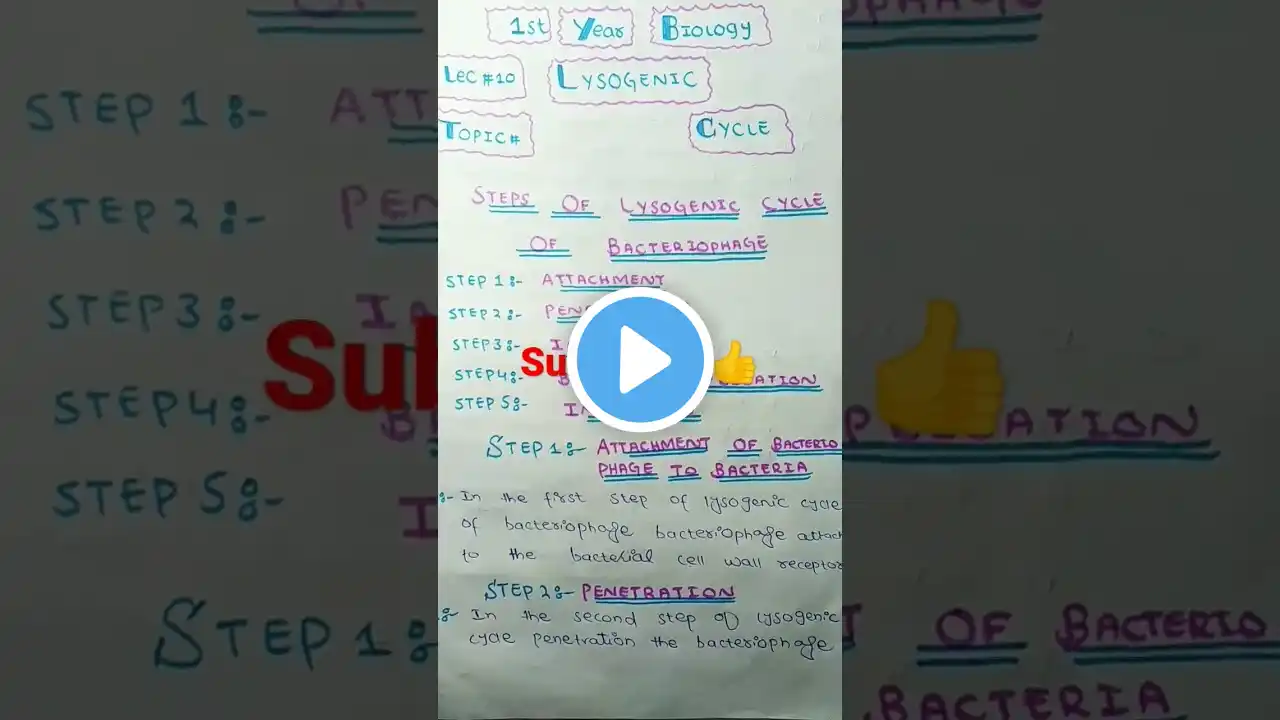 1st Year Biology
Lec #10 Lysogenic
Topic # Cycle
Steps Of Lysogenic Cycle
Of Bacteriophage
STEP 1:- ATTACHMENT
STEP 2:- PEN
STEP 3:- I
STEP 4:- ATION
STEP 5:- IN
Su 👍
STEP 1:- ATTACHMENT OF BACTERIO
PHAGE TO BACTERIA
:- In the first step of lysogenic cycle
of bacteriophage bacteriophage attach
to the bacterial cell wall receptor
STEP 2:- PENETRATION
:- In the second step of lysogenic
cycle penetration the bacteriophage